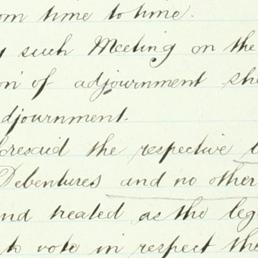 om time to time.
such Meeting on the
on of adjournment sh
djournment.
oresaid the respective
Debentures and no other
nd treated as the leg
to vote in respect the